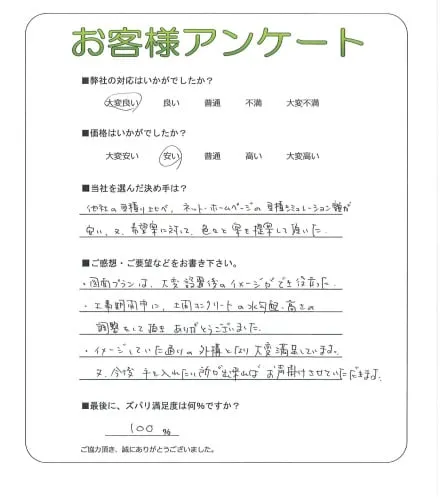 お客様アンケート
■弊社の対応はいかがでしたか?
大変良い 良い 普通 不満 大変不満
■価格はいかがでしたか?
大変安い 安い 普通 高い 大変高い
■当社を選んだ決め手は?
他社の見積り比べ、ネット・ホームページの見積シミュレーション額が
安い、又、希望案に対して、色々と案を提案して頂いた。
■ご感想・ご要望などをお書き下さい。
・図面プランは、大変設置後のイメージができ役立った。
・工事期間中に、土間コンクリートの水勾配・高さの
調整をして頂き ありがとうございました。
・イメージしていた通りの外構となり大変満足しています。
又、今後 手を入れたい所が出来れば お声掛けさせていただきます。
■最後に、ズバリ満足度は何%ですか?
100 %
ご協力頂き、誠にありがとうございました。